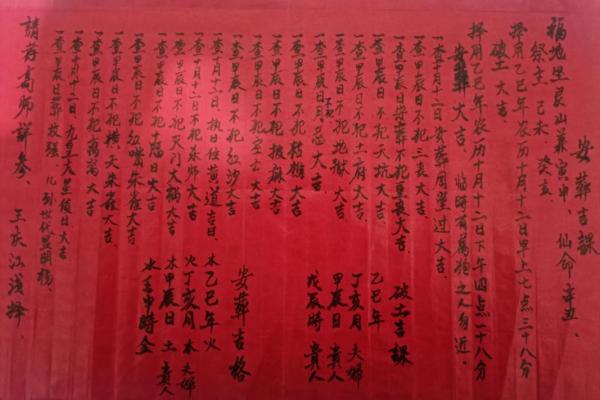 安葬吉課
福地坐艮山兼寅申、仙命辛丑、
祭主己未、癸亥、
择用乙巳年农历十月十二日早上七点三十八分
破土大吉
择用乙巳年农历十月十二日下午四点一十八分
安葬大吉 临时有属狗之人勿近、
一查十月十二日安葬周堂过大吉、
一查甲辰日不犯三丧大吉
一查甲辰日安葬不犯重丧大吉、
一查甲辰日不犯天坑大吉
一查甲辰日不犯十二府大吉
一查甲辰日不犯地狱大吉
一查甲辰日不犯月忌大吉
一查甲辰日不犯大吉
一查甲辰日不犯披麻大吉
一查甲辰日不犯大吉
一查甲辰日不犯红沙大吉
一查十月十二日执日位黄道吉日、
一查甲辰日不犯灭门大祸大吉
一查十月十二日不犯杨公大吉
一查甲辰日不犯大吉
一查甲辰日不犯红嘴朱雀大吉
一查甲辰日不犯横天朱雀大吉
一查甲辰日不犯大吉
一查十月十二日九五六星值日大吉
一查甲辰日葬故强 儿到世代显明扬
請芳高師詳参、
王家江浅择、
破土吉課
乙巳年
丁亥月 夫婦
甲辰日 貴人
戊辰時 貴人
安葬吉格
木乙巳年火
火丁亥月木 夫婦
木甲辰日土 貴人
水壬申時金